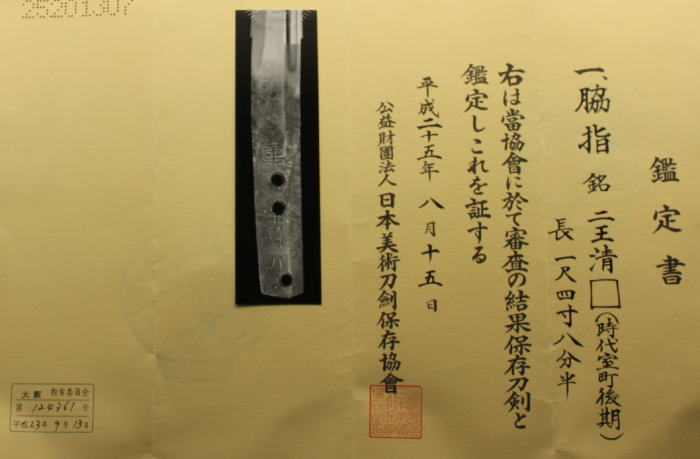 鑑定書
一、脇指 銘 二王清□(時代室町後期)
長一尺四寸八分半
右は當協會に於て審査の結果保存刀剣と
鑑定しこれを証する
平成二十五年 八月十五日
公益財團法人日本美術刀劍保存協會
大阪 教育委員会
第 124361 号
平成23年 9月 13日